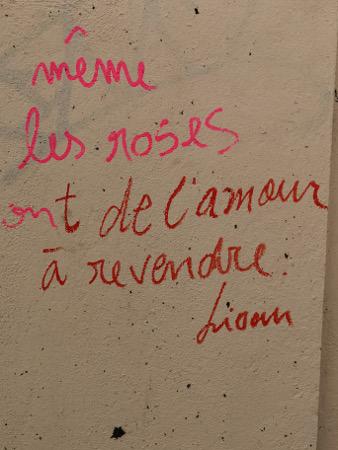 même
les roses
ont de l'amour
à revendre.